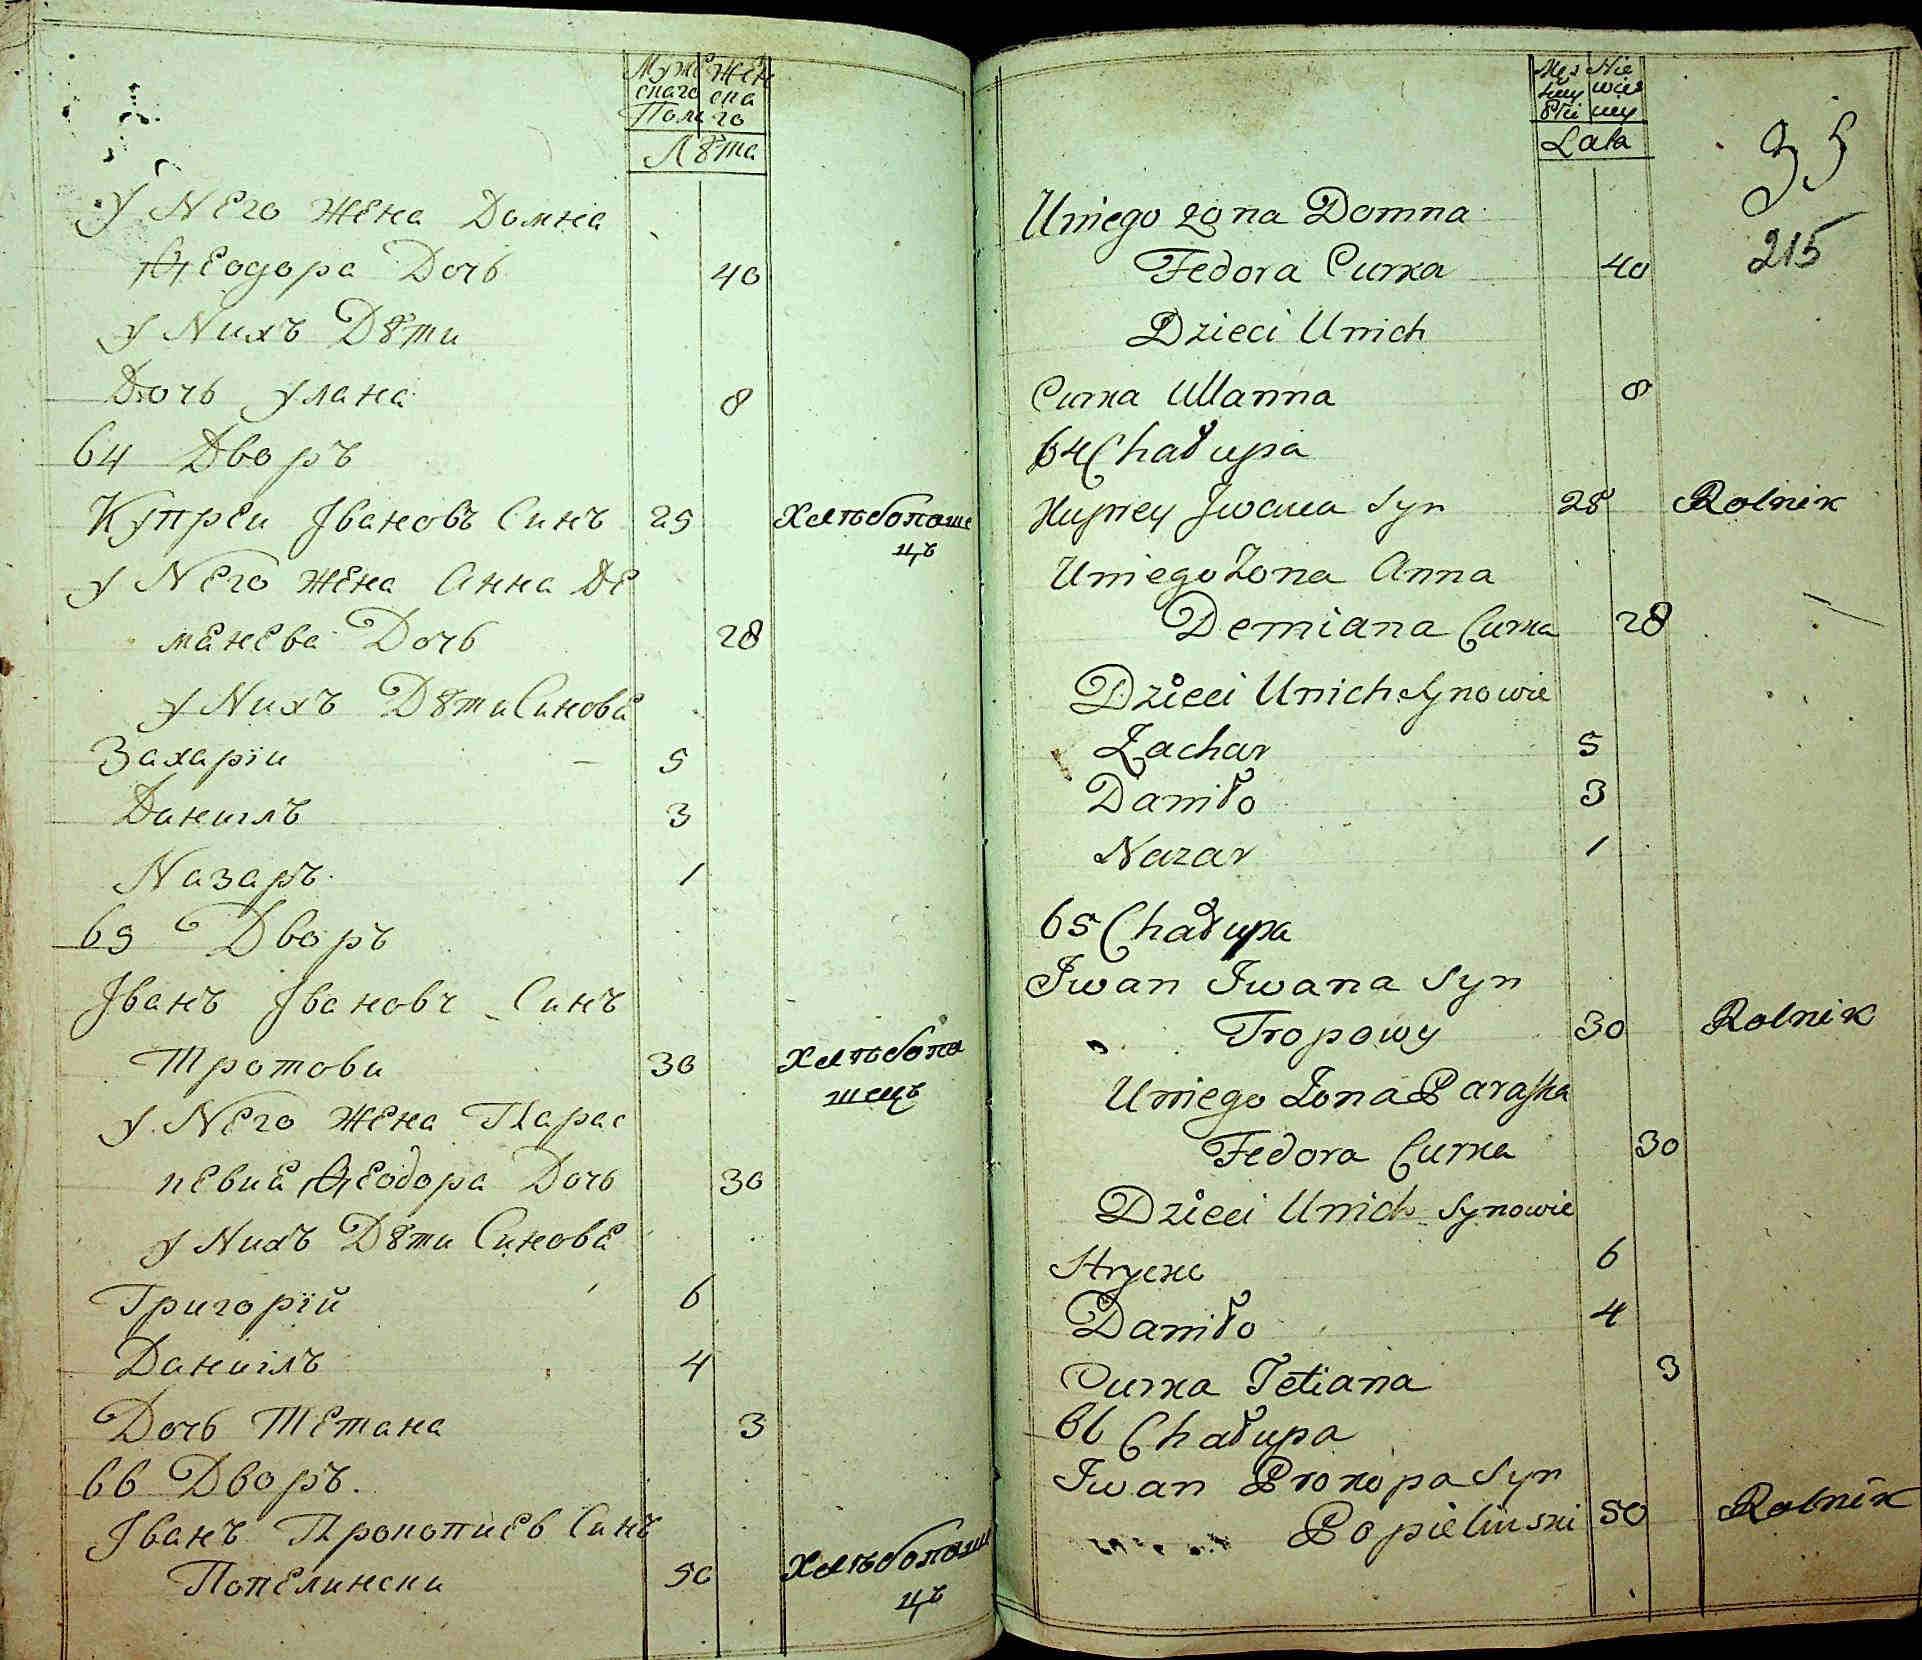 Мужескаго Пола
Женскаго
Лѣта
У Nего жена Домна
Ѳеодора Дочь 40
У Nихъ Дѣти
Дочь Улана 8
64 Дворъ
Купреи Івановъ Синъ 25 Хлѣбопаше
цъ
У Nего жена Анна Де
менева Дочь 28
У Nихъ Дѣти Синове
Захаріи 5
Даниілъ 3
Nазаръ 1
65 Дворъ
Іванъ Івановъ Синъ
Тротови 30 Хлѣбопа
шецъ
У Nего жена Парас
кевиа Ѳеодора Дочь 30
У Nихъ Дѣти Синове
Григорій 6
Даниілъ 4
Дочь Тетана 3
66 Дворъ.
Іванъ Прокопиев Синъ
Попелински 50 Хлѣбопаше
цъ
Lata
35
215
Uniego żona Domna
Fedora Curka 40
Dzieci Unich
Curka Ullanna 8
64 Chałupa
Kuprey Jwana Syn 25 Rolnik
Uniego Żona Anna
Demiana Curka 28
Dzieci Unich Synowie
Zachar 5
Daniło 3
Nazar 1
65 Chałupa
Iwan Iwana Syn
Tropowy 30 Rolnik
Uniego Żona Paraska
Fedora Curka 30
Dzieci Unich Synowie
Hrycko 6
Daniło 4
Curka Tetiana 3
66 Chałupa
Iwan Prokopa Syn
Popielinski 50 Rolnik